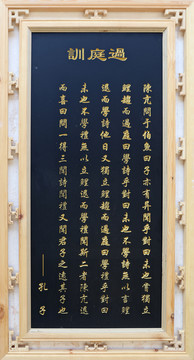 過庭訓
陳亢問于伯魚曰子亦有異聞乎對曰未也嘗獨立
鯉趨而過庭曰學詩乎對曰未也不學詩無以言鯉
退而學詩他日又獨立鯉趨而過庭曰學禮乎對曰
未也不學禮無以立鯉退而學禮聞斯二者陳亢退
而喜曰問一得三聞詩聞禮又聞君子之遠其子也
——孔子